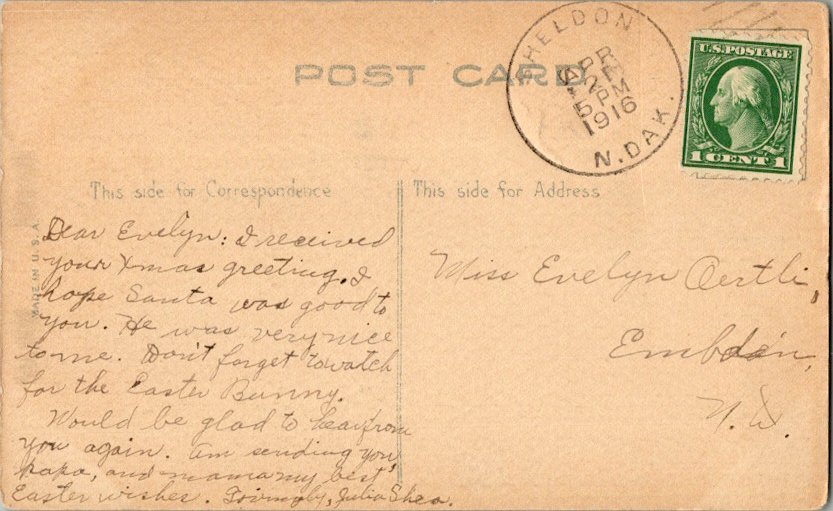 POST CARD
SHELDON
APR
5 PM
1916
N. DAK.
U.S. POSTAGE
1 CENT 1
This side for Correspondence
This side for Address
MADE IN U.S.A.
Dear Evelyn: I received
your Xmas greeting. I
hope Santa was good to
you. He was very nice
to me. Don't forget to watch
for the Easter Bunny.
Would be glad to hear from
you again. Am sending you,
papa, and mama my best
Easter wishes. Lovingly, Julia Shea.
Miss Evelyn Oertli,
Embden,
N.D.